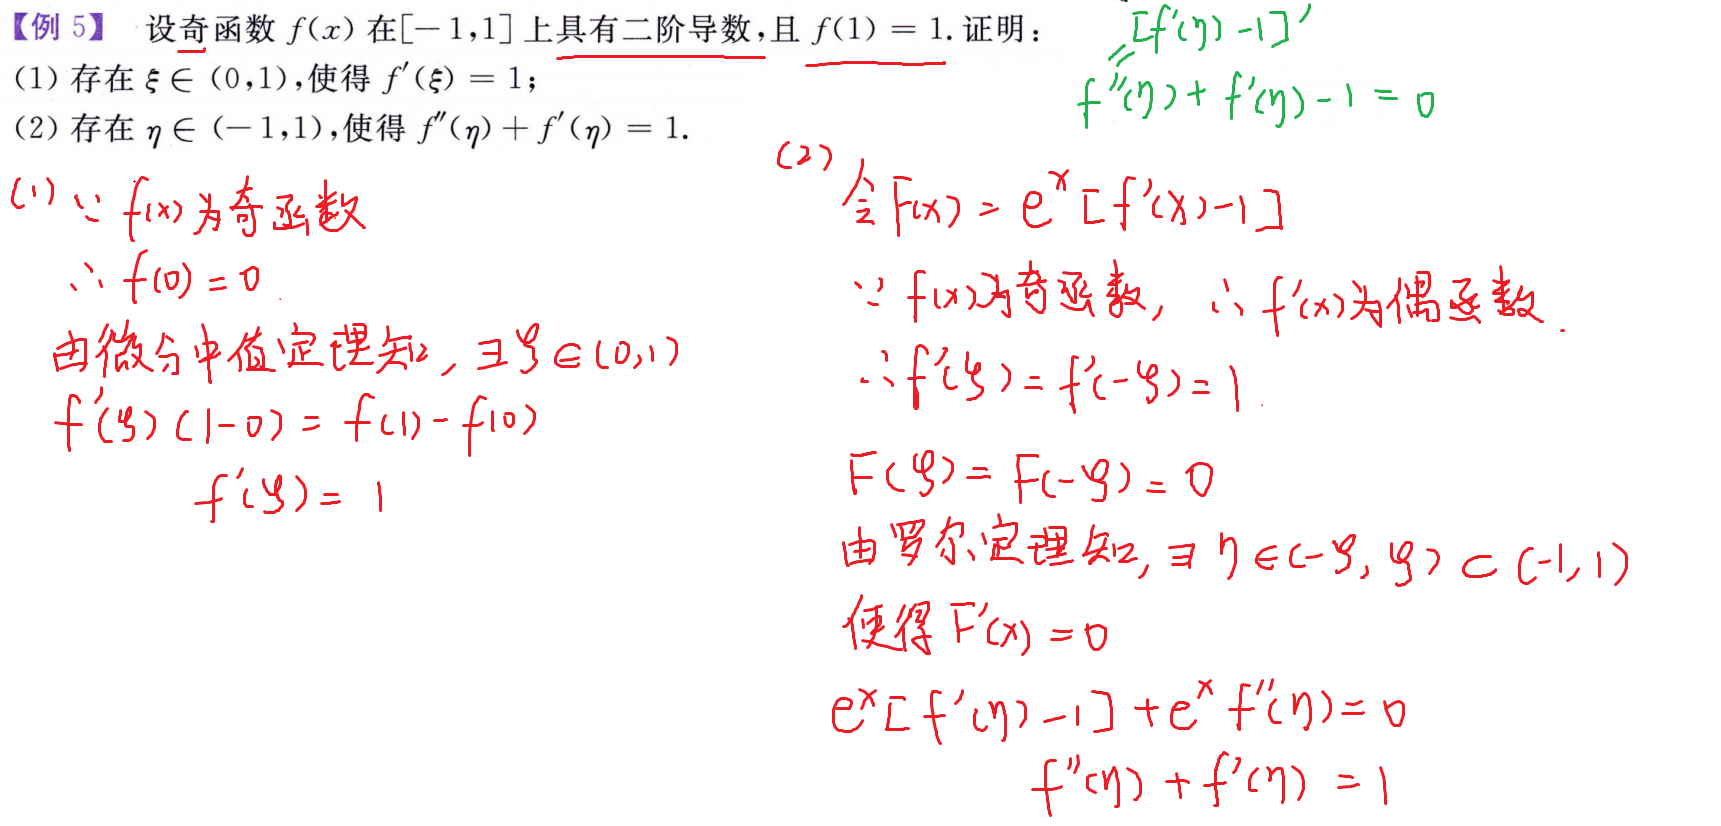 【例 5】 设奇函数 f(x) 在[-1,1]上具有二阶导数,且 f(1) = 1. 证明:
(1) 存在 ξ ∈ (0,1),使得 f′(ξ) = 1;
(2) 存在 η ∈ (-1,1),使得 f″(η) + f′(η) = 1.
[f′(η) -1]′
f″(η) + f′(η) - 1 = 0
(1) ∵ f(x) 为奇函数
∴ f(0) = 0
由微分中值定理知, ∃ξ∈(0,1)
f′(ξ)(1-0) = f(1) - f(0)
f′(ξ) = 1
(2) 令 F(x) = e^x [f′(x) -1]
∵ f(x)为奇函数, ∴ f′(x)为偶函数.
∴ f′(ξ) = f′(-ξ) = 1.
F(ξ) = F(-ξ) = 0
由罗尔定理知, ∃ η ∈(-ξ, ξ) ⊂ (-1, 1)
使得 F′(x) = 0
e^x [f′(η) -1] + e^x f″(η) = 0
f″(η) + f′(η) = 1